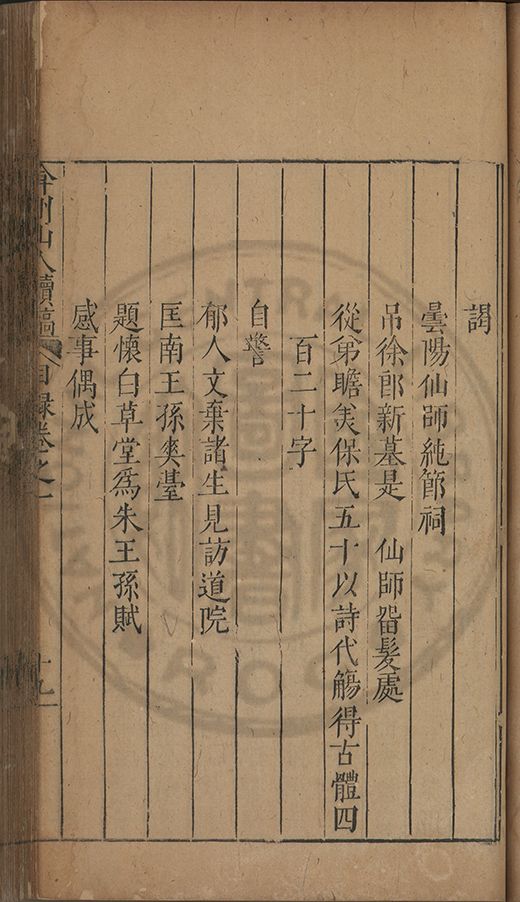 謁
曇陽仙師純節祠
吊徐郎新墓是　仙師畱髮處
從弟瞻美保氏五十以詩代觴得古體四
百二十字
自警
郁人文棄諸生見訪道院
匡南王孫爽臺
題懷白草堂爲朱王孫賦
感事偶成
弇州山人續稿　目錄卷之一
十九